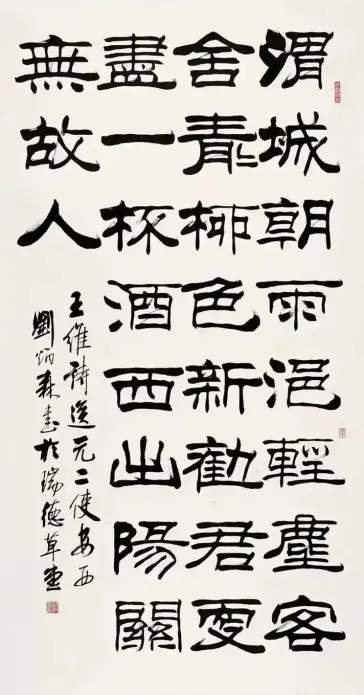 渭城朝雨浥輕塵客
舍青〻柳色新勸君更
盡一杯酒西出陽關
無故人
王維詩送元二使安西
劉炳森書於瑞德草堂